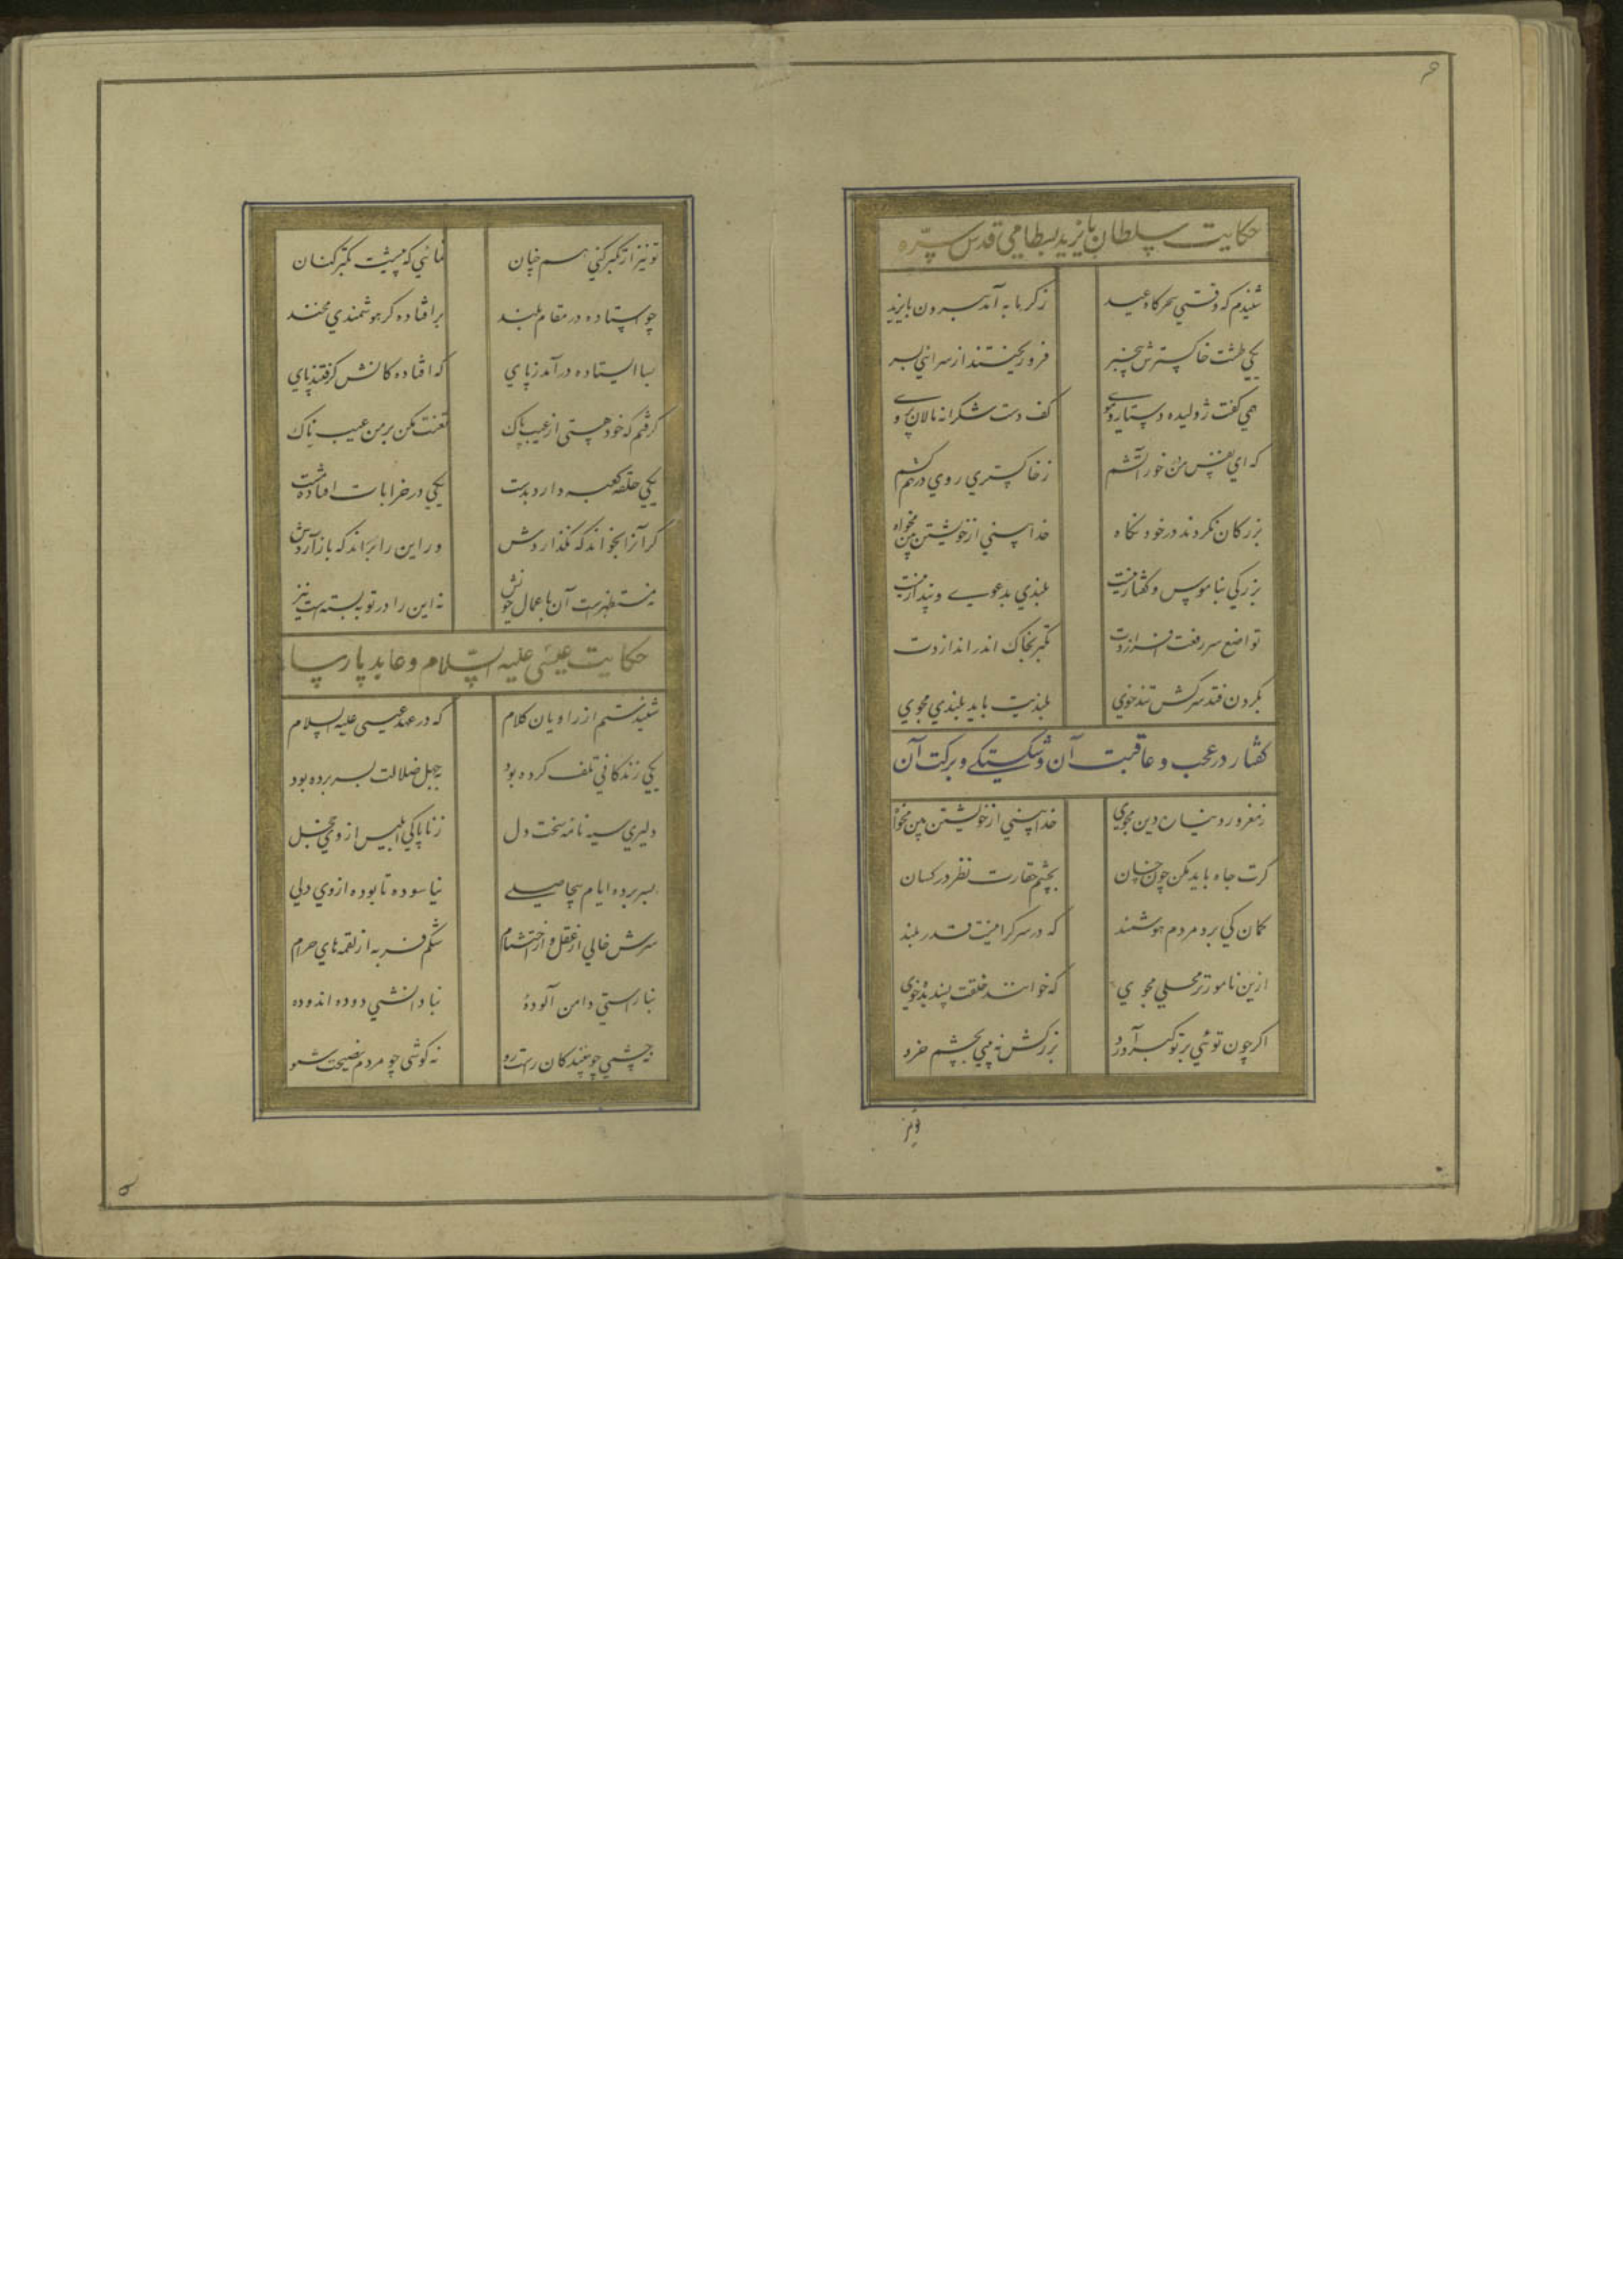 حکایت سلطان بایزید بسطامی قدس سرّه
شنیدم که وقتی سحرکاه عید
ز کرمابه آمد برون بایزید
یکی طشت خاکسترش بیخبر
فرو ریختند از سرائی بسر
همی کفت ژولیده دستار و موی
کف دست شکرانه مالان بروی
که ای نفس من در خور آتشم
ز خاکستری روی در هم کشم
بزرکان نکردند در خود نکاه
خدا بینی از خویشتن بین مخواه
بزرکی بناموس و کفتار نیست
بلندی بدعوی و پندار نیست
تواضع سر رفعت افرازدت
تکبر بخاک اندر اندازدت
بکردن فتد سرکش تندخوی
بلندیت باید بلندی مجوی
کفتار در عجب و عاقبت آن و شکستکی و برکت آن
ز مغرور دنیا ره دین مجوی
خدا بینی از خویشتن بین مخواه
کرت جاه باید مکن چون خسان
بچشم حقارت نظر در کسان
کمان کی برد مردم هوشمند
که در سرکرانیست قدر بلند
ازین نامورتر محلی مجوی
که خوانند خلقت پسندیده خوی
اکر چون توئی بر تو کبر آورد
بزرکش نه بینی بچشم خرد
تو نیز
۶
تو نیز ار تکبر کنی همچنان
نمائی که پیشت تکبر کنان
چو استاده در مقام بلند
بر افتاده کر هوشمندی مخند
بسا ایستاده در آمد ز پای
که افتاده کانش کرفتند پای
کرفتم که خود هستی از عیب پاک
تعنت مکن بر من عیب ناک
یکی حلقه کعبه دارد بدست
یکی در خرابات افتاده مست
کر آنرا بخواند که نکذاردش
ور این را براند که باز آردش
نه مستظهرست آن باعمال خویش
نه این را در توبه بسته است نیز
حکایت عیسی علیه السّلام و عابد پارسا
شنیدستم از راویان کلام
که در عهد عیسی علیه السلام
یکی زندکانی تلف کرده بود
بجهل ضلالت بسر برده بود
دلیری سیه نامه سخت دل
ز ناپاکی ابلیس از وی خجل
بسر برده ایام بیحاصلی
نیاسوده تا بوده از وی دلی
سرش خالی از عقل و از احتشام
شکم فربه از لقمهای حرام
بناراستی دامن آلودهٔ
بنادانشی دوده اندوده
بچشمی چو بینندکان راست رو
نه کوشی چو مردم نصیحت شنو